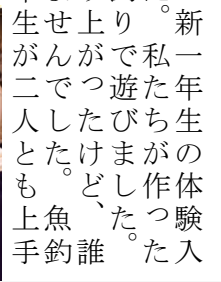 新一年生の体験入
。私たちが作った
りで遊びました。
上がったけど、誰
せんでした。魚釣
生が二人とも上手